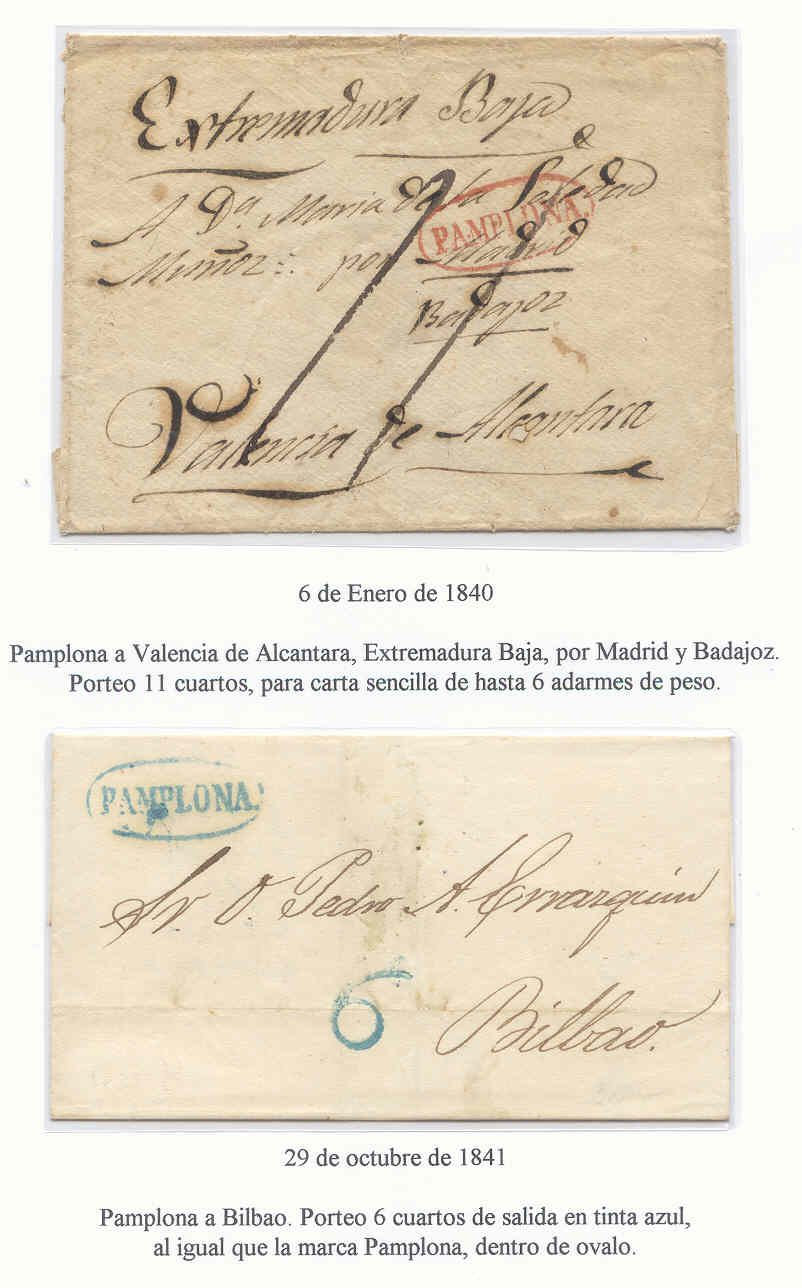 Extremadura Baja
A Dª. Maria de la Soledad
PAMPLONA.
Muñoz : por Madrid
Badajoz
11
Valencia de Alcantara
6 de Enero de 1840
Pamplona a Valencia de Alcantara, Extremadura Baja, por Madrid y Badajoz.
Porteo 11 cuartos, para carta sencilla de hasta 6 adarmes de peso.
PAMPLONA.
Sr. D. Pedro A. Errazquin
6
Bilbao.
29 de octubre de 1841
Pamplona a Bilbao. Porteo 6 cuartos de salida en tinta azul,
al igual que la marca Pamplona, dentro de ovalo.